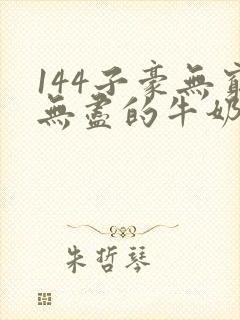 144子豪無窮
無盡的牛奶
朱哲琴